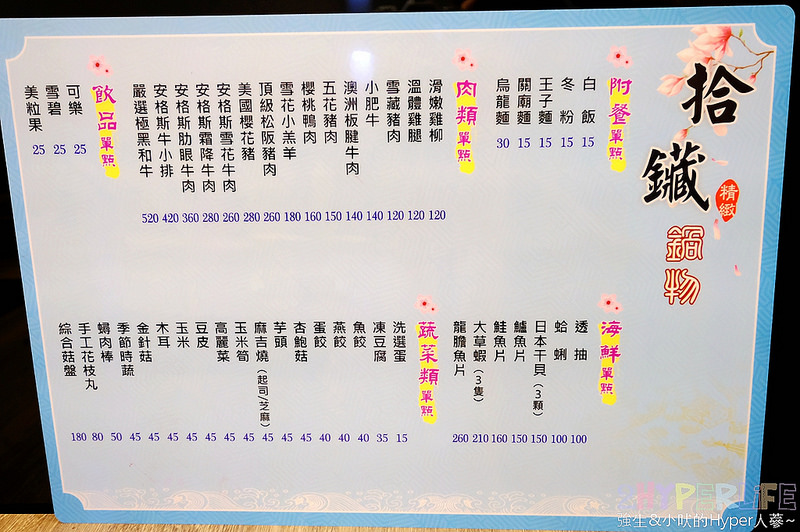 拾鑶
精緻
鍋物
附餐單點
白飯 15
冬粉 15
王子麵 15
關廟麵 15
烏龍麵 30
肉類單點
滑嫩雞柳 120
溫體雞腿 120
雪藏豬肉 120
小肥牛 140
澳洲板腱牛肉 140
五花豬肉 150
櫻桃鴨肉 160
雪花小羔羊 180
頂級松阪豬肉 260
美國櫻花豬 280
安格斯雪花牛肉 260
安格斯霜降牛肉 280
安格斯肋眼牛肉 360
安格斯牛小排 420
嚴選極黑和牛 520
飲品單點
可樂 25
雪碧 25
美粒果 25
海鮮單點
透抽 100
蛤蜊 100
日本干貝(3顆) 150
鱸魚片 150
鮭魚片 160
大草蝦(3隻) 210
龍膽魚片 260
蔬菜類單點
洗選蛋 15
凍豆腐 35
魚餃 40
燕餃 40
蛋餃 40
杏鮑菇 45
芋頭 45
麻吉燒(起司/芝麻) 45
玉米筍 45
高麗菜 45
豆皮 45
玉米 45
木耳 45
金針菇 45
季節時蔬 45
蟳肉棒 50
手工花枝丸 80
綜合菇盤 180
HYPERLIFE
強生&小吠的Hyper人蔘~